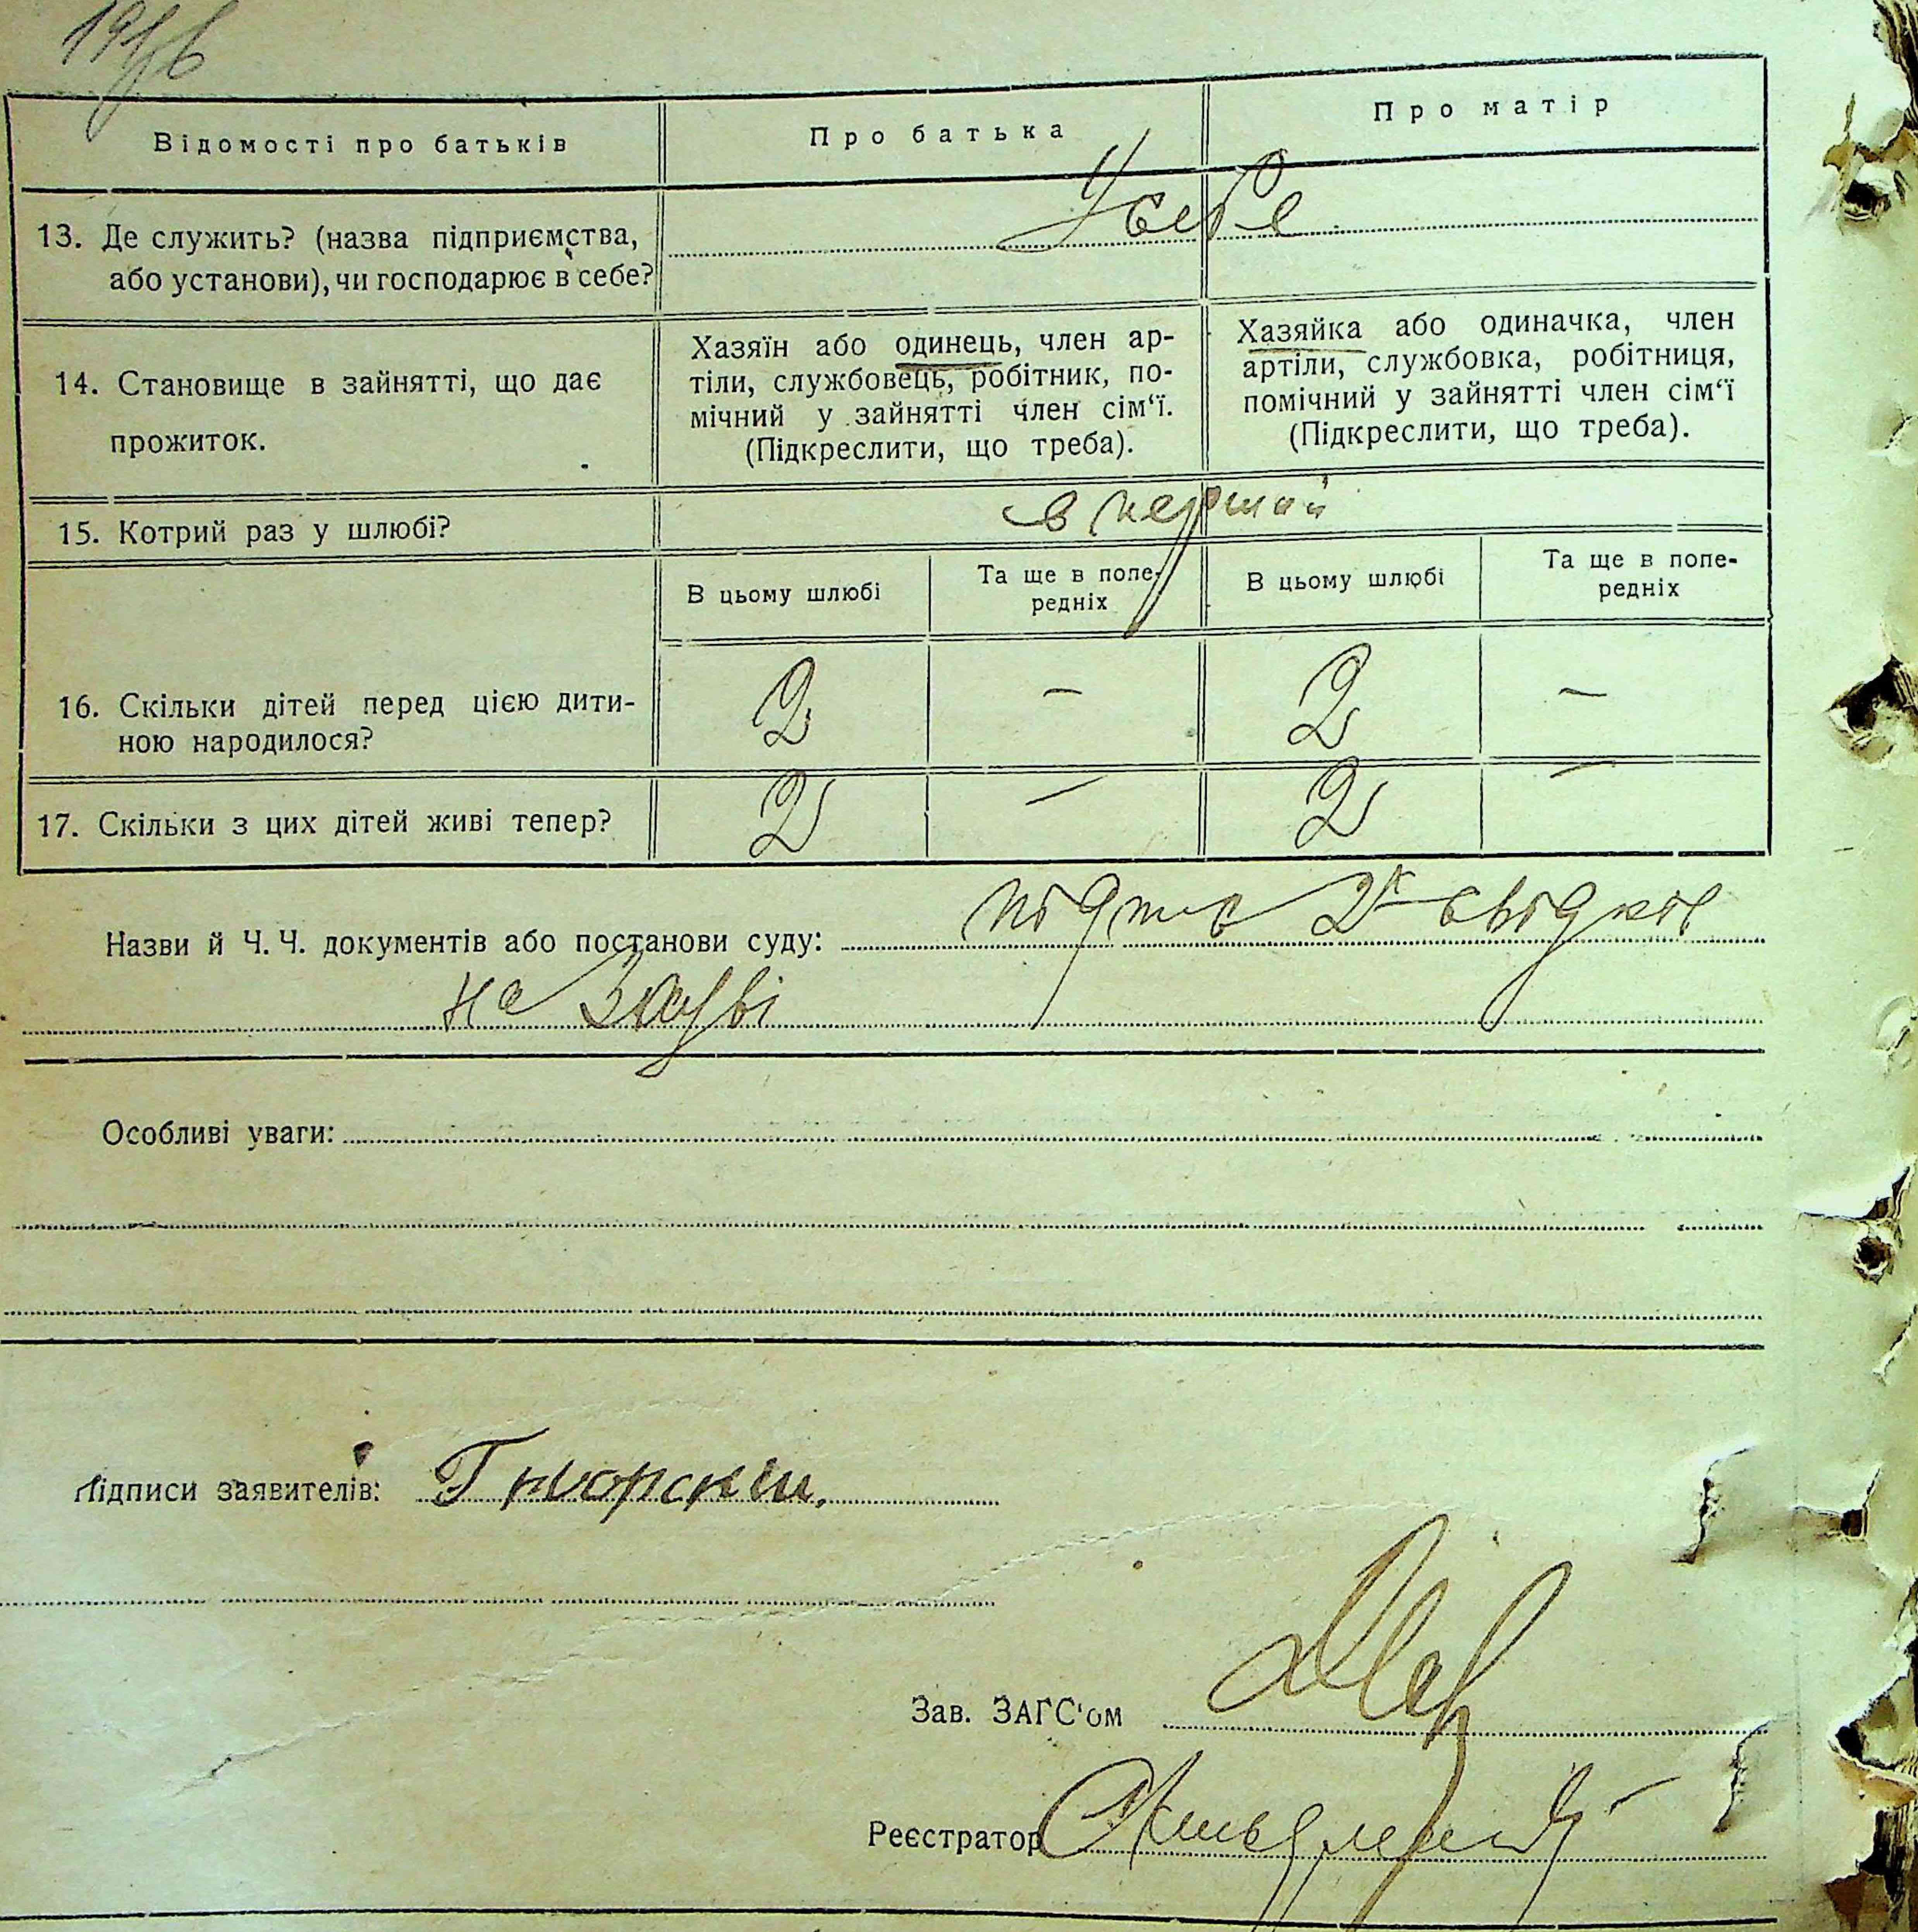 Відомості про батьків
Про батька
Про матір
13. Де служить? (назва підприємства,
або установи), чи господарює в себе?
У себе
14. Становище в зайнятті, що дає
прожиток.
Хазяїн або одинець, член ар-
тіли, службовець, робітник, по-
мічний у зайнятті член сім‘ї.
(Підкреслити, що треба).
Хазяйка або одиначка, член
артіли, службовка, робітниця,
помічний у зайнятті член сім‘ї
(Підкреслити, що треба).
15. Котрий раз у шлюбі?
в перший
В цьому шлюбі
Та ще в попе-
редніх
В цьому шлюбі
Та ще в попе-
редніх
16. Скільки дітей перед цією дити-
ною народилося?
2 — 2 —
17. Скільки з цих дітей живі тепер?
2 — 2 —
Назви й Ч. Ч. документів або постанови суду: підпис 2х свідків
на заяві
Особливі уваги:
Підписи заявителів:
Зав. ЗАГС'ом
Реєстратор